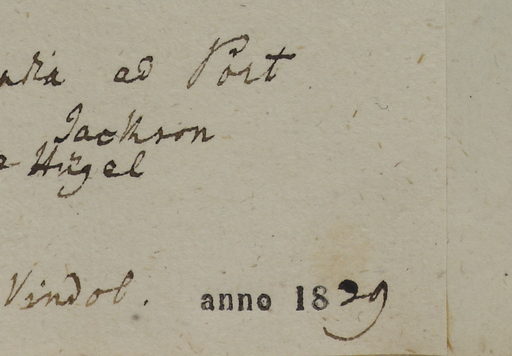 ad Port
Jackson
Hügel
Vindob. anno 1839